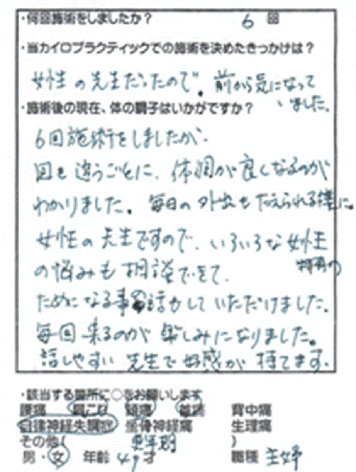 ・何回施術をしましたか？ 6 回
・当カイロプラクティックでの施術を決めたきっかけは？
女性の先生だったので。前から気になって
いました。
・施術後の現在、体の調子はいかがですか？
6回施術をしましたが、
回を追うごとに、体調が良くなるのが
わかりました。毎日の外出も耐えられる様に。
女性の先生ですので、いろいろな女性
特有の
の悩みも相談できて、
ためになる事も話かしていただけました。
毎回来るのが楽しみになりました。
話しやすい先生で好感が持てます。
・該当する箇所に○をお願いします
腰痛 肩こり 頭痛 背中痛
自律神経失調症 坐骨神経痛 生理痛
その他( 更年期 )
男・女 年齢 49才 職種 主婦